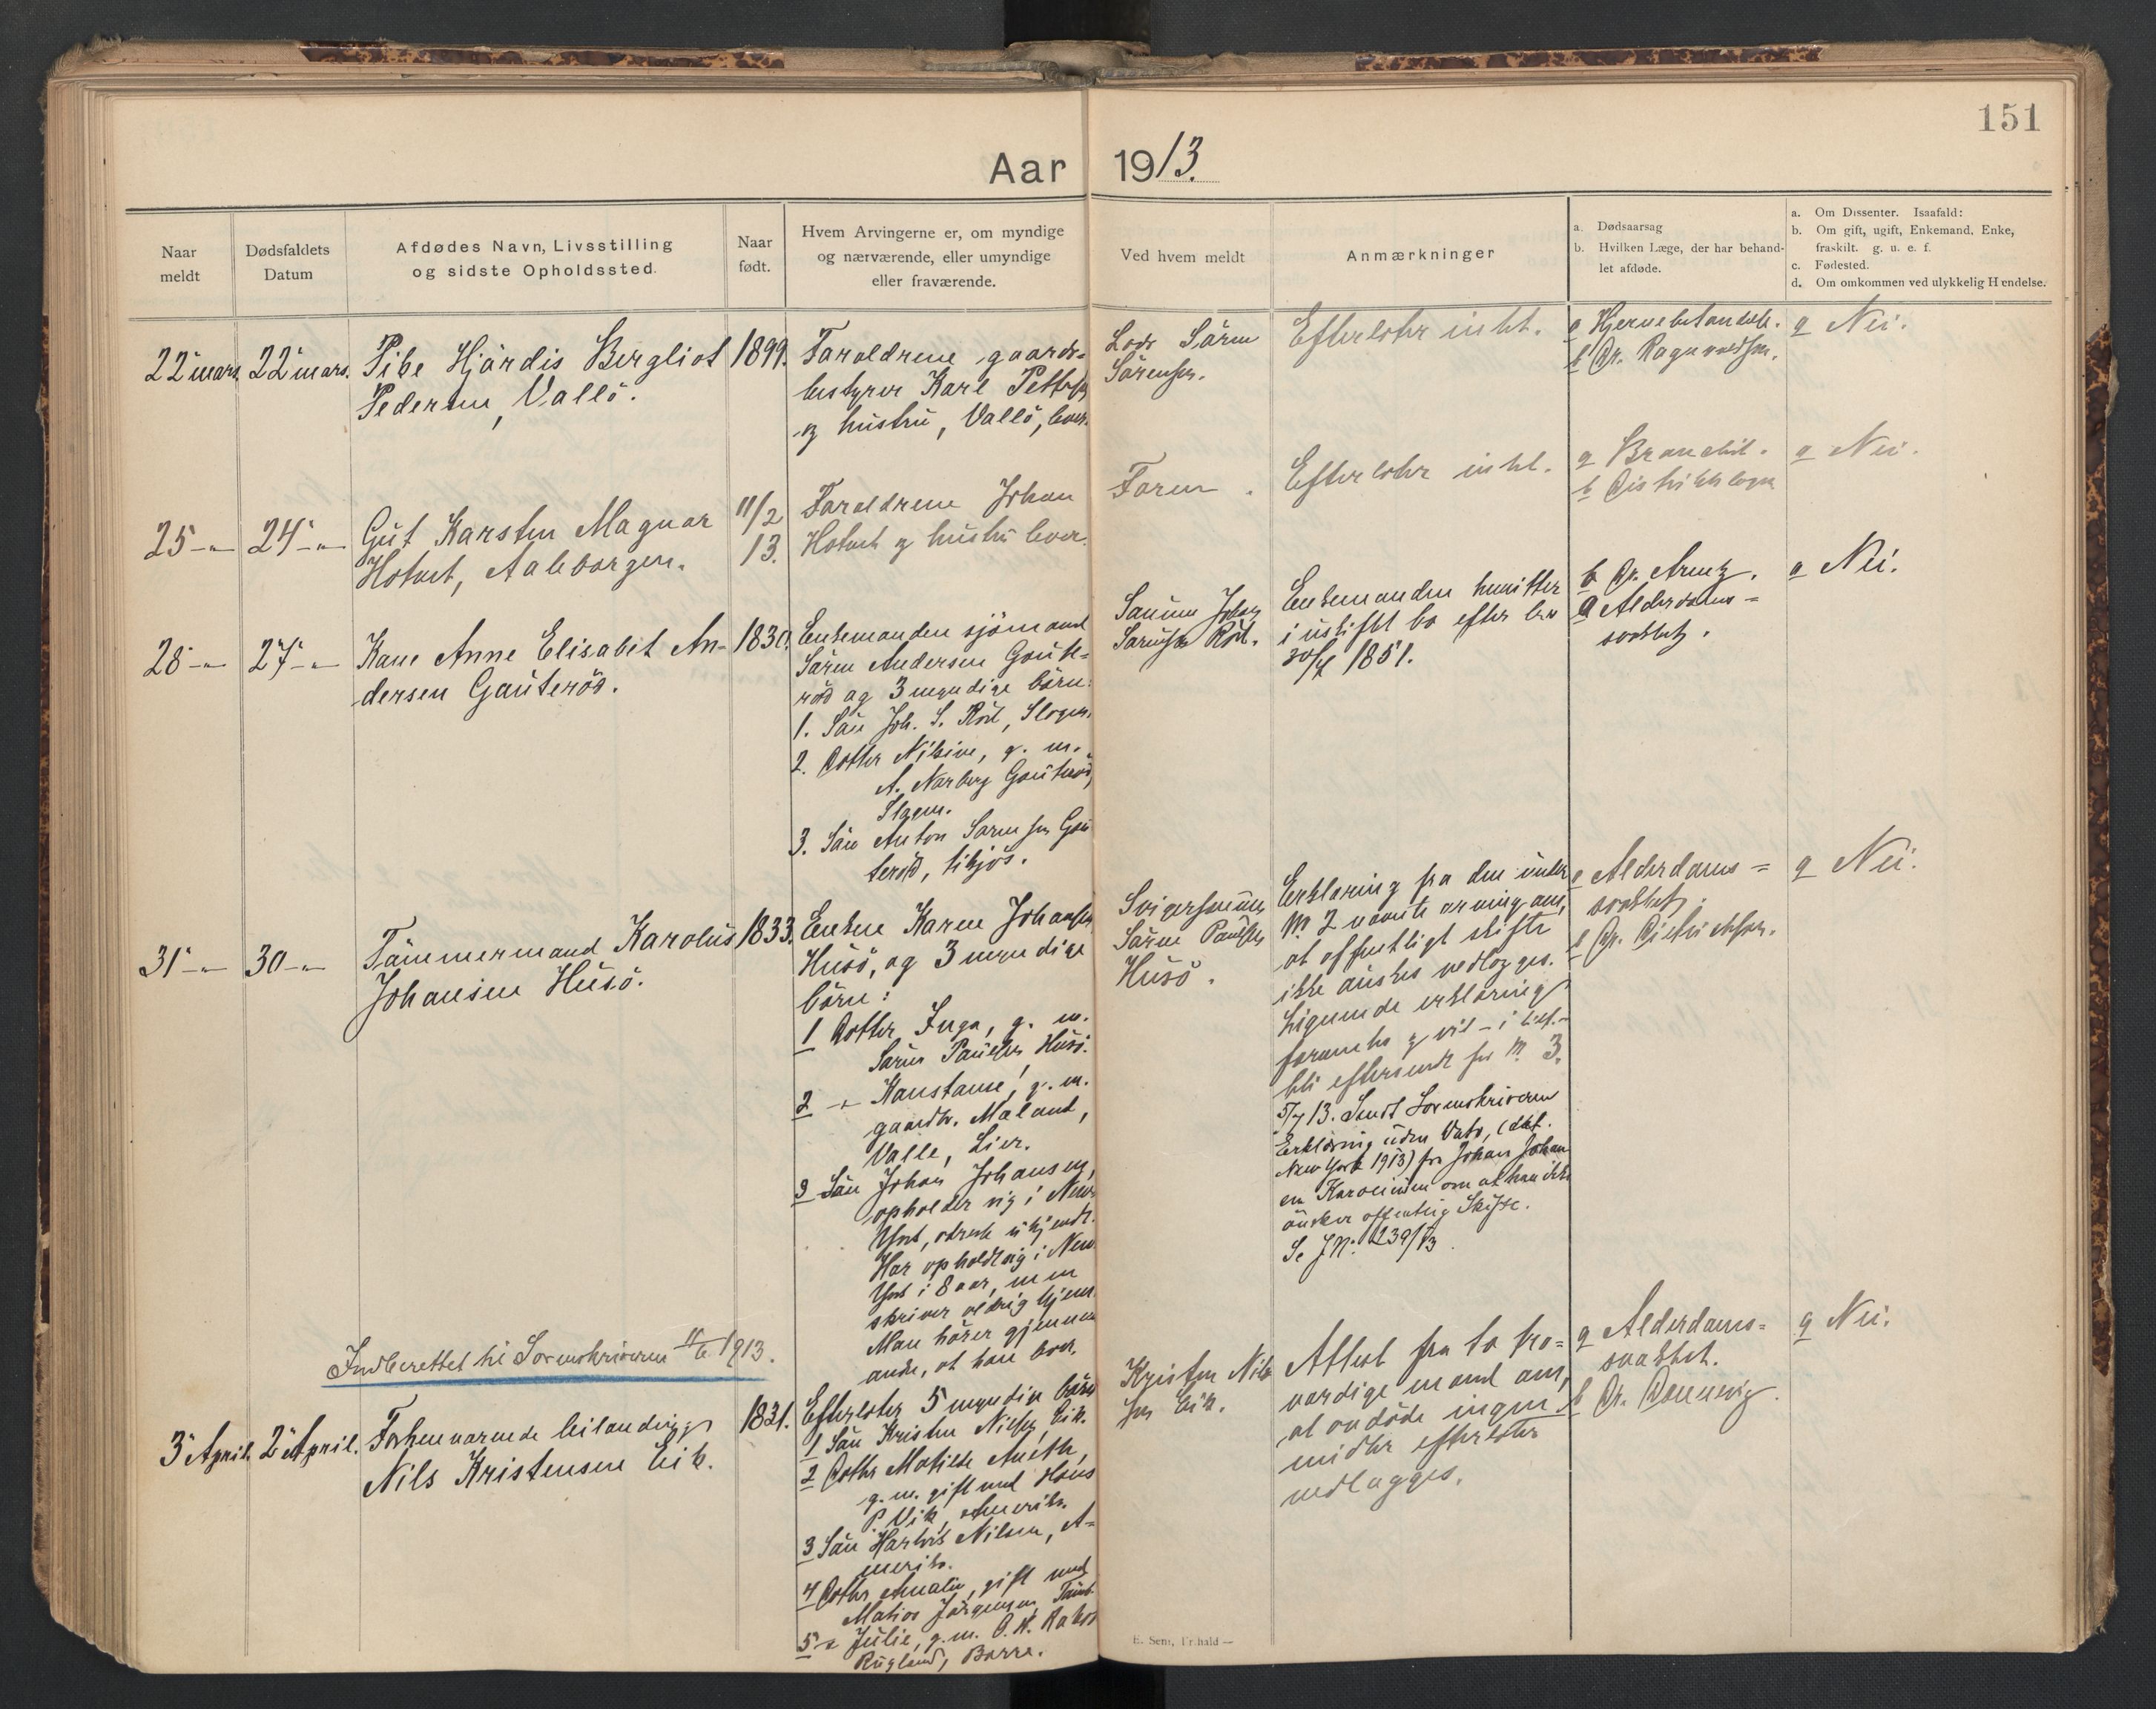 151
Aar 1913.
Naar meldt
Dødsfaldets Datum
Afdødes Navn, Livsstilling og sidste Opholdssted.
Naar født.
Hvem Arvingerne er, om myndige og nærværende, eller umyndige eller fraværende.
Ved hvem meldt
Anmærkninger
a. Dødsaarsag
b. Hvilken Læge, der har behandlet afdøde.
a. Om Dissenter. Isaafald:
b. Om gift, ugift, Enkemand, Enke, fraskilt. g. u. e. f.
c. Fødested.
d. Om omkommen ved ulykkelig Hændelse.
22 mars. 22 mars.
Pike Hjördis Bergliot
Pedersen, Vallö.
1899.
Forældrene gaards-
bestyrer Karl Petters
og hustru, Vallö, lever.
Lods Sören
Sörensen.
Efterlater intet.
a Hjernebetændelse.
b Dr. Ragnvaldsen.
a Nei.
25 -"- 24 -"-
Gut Karsten Magnar
Hotvet, Aaleborgen.
11/2
13.
Forældrene Johan
Hotvet og hustru lever.
Faren.
Efterlater intet.
a Bronchit.
b Distriktslægen
a Nei.
28 -"- 27 -"-
Kone Anne Elisabet An-
dersen Gauterød.
1830.
Enkemanden sjömand
Sören Andersen Gaute-
röd og 3 myndige börn:
1. Sön Joh. S. Röd, Slagen.
2. Datter Nilsine, g. m.
A. Narberg Gauteröd,
Slagen.
3. Sön Anton Sörensen Gau
teröd, tilsjös.
Sönnen Johan
Sörensen Röd.
Enkemanden hensitter
i uskiftet bo efter lov
30/7 1851.
b Dr. Arentz.
a Alderdoms-
svakhet.
a Nei.
31 -"- 30 -"-
Tömmermand Karolius
Johansen Husö.
1833.
Enken Karen Johansen
Husö, og 3 myndige
börn:
1 Datter Inga, g. m.
Sören Paulsen, Husö.
2 -"- Konstanse, g. m.
gaardbr. Maland,
Valle, Lier.
3 Sön Johan Johansen,
opholder sig i New
York, adresse ukjendt.
Har opholdt sig i New
York i 8 aar, men
skriver aldrig hjem.
Man hörer gjennem
andre, at han lever.
Svigersönnen
Sören Paulsen
Husö.
Erklæring fra den under
No 2 nævnte arving om,
at offentligt skifte
ikke önskes vedlægges.
Lignende erklæring
foranstas og vil - i tilf.-
bli eftersendt fra No 3.
5/7 13. Sendt Sorenskriveren
Erklæring uden Dato, (dat.
New York 1913) fra Johan Johan
en Karolinsen om at han ikke
önsker offentlig Skifte.
Se J.No. 239/13.
a Alderdoms-
svakhet.
b Dr. Didrichsen.
a Nei.
Indberettet til Sorenskriveren 11/6 1913.
3 April. 2 April.
Forhenværende leilændig
Nils Kristensen Eik.
1821.
Efterlater 5 myndige börn
1 Sön Kristen Nilsen, Eik.
2 Datter Matilde Aneth,
g. m. gift med Hans
P. Vik, Amerika.
3 Sön Hartvik Nilsen, A-
merika.
4 Datter Amalie, gift med
Matias Jörgensen, Tönsb.
5 -"- Julie, g. m. O. A.
Rugland, Borre.
Kristen Nil
sen Eik.
Attest fra to tro-
værdige mænd om,
at avdöde ingen
midler efterlater
vedlægges.
a Alderdoms-
svakhet.
b Dr. Dannevig.
a Nei.
E. Sem, Fr.hald —